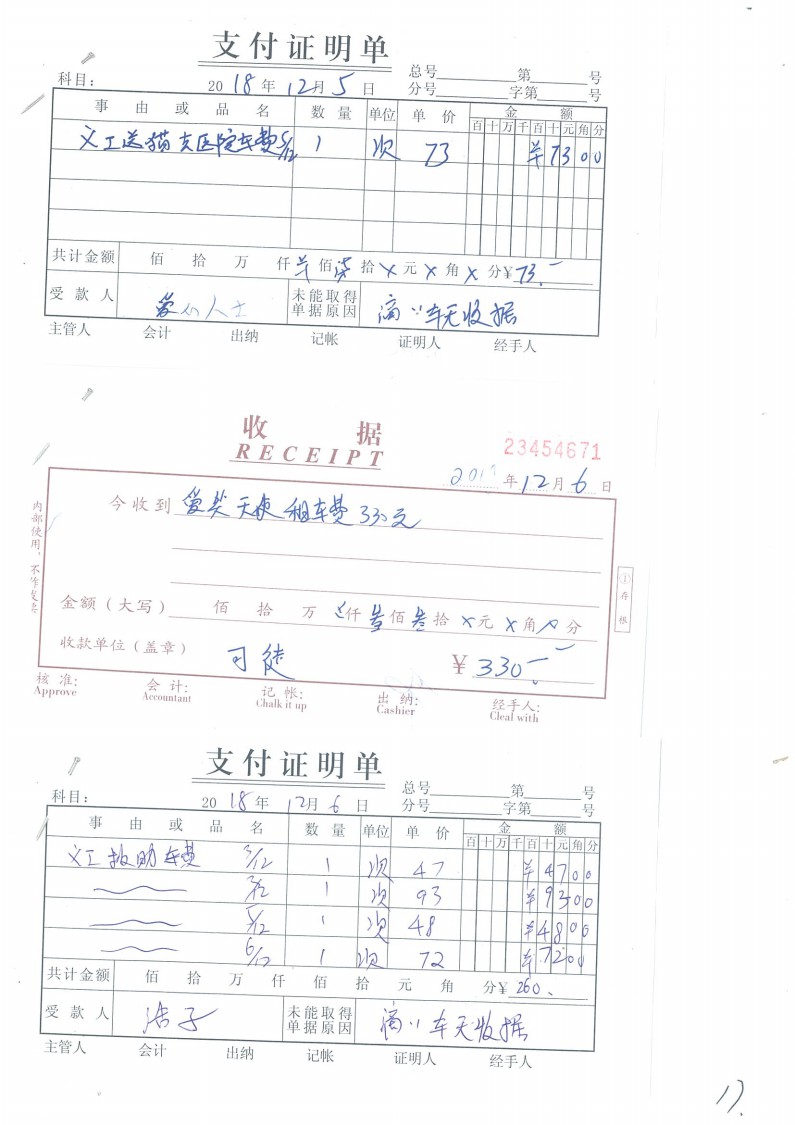 支付证明单
科目： 2018年12月5日 总号 第 号
分号 字第 号
事由或品名 数量 单位 单价 金额
百十万千百十元角分
义工送猫去医院车费5/12 1 次 73 ¥7300
共计金额 佰 拾 万 仟 ¥ 佰 柒 拾 X 元 X 角 X 分 ¥ 73.-
受款人 爱心人士 未能取得单据原因 滴滴车无收据
主管人 会计 出纳 记帐 证明人 经手人
收据
RECEIPT
23454671
201 年12月6日
今收到 租车费330元
内部使用，不作发票
①存根
金额（大写） 佰 拾 万 仟 叁 佰 叁 拾 X 元 X 角 分
收款单位（盖章） 司徒 ¥ 330.-
核准： 会计： 记帐： 出纳： 经手人：
Approve Accountant Chalk it up Cashier Cleal with
支付证明单
科目： 2018年12月6日 总号 第 号
分号 字第 号
事由或品名 数量 单位 单价 金额
百十万千百十元角分
义工救助车费 /12 1 次 47 ¥4700
/12 1 次 93 ¥9300
5/12 1 次 48 ¥4800
6/12 1 次 72 ¥7200
共计金额 佰 拾 万 仟 佰 拾 元 角 分 ¥ 260.
受款人 浩子 未能取得单据原因 滴滴车无收据
主管人 会计 出纳 记帐 证明人 经手人
17.